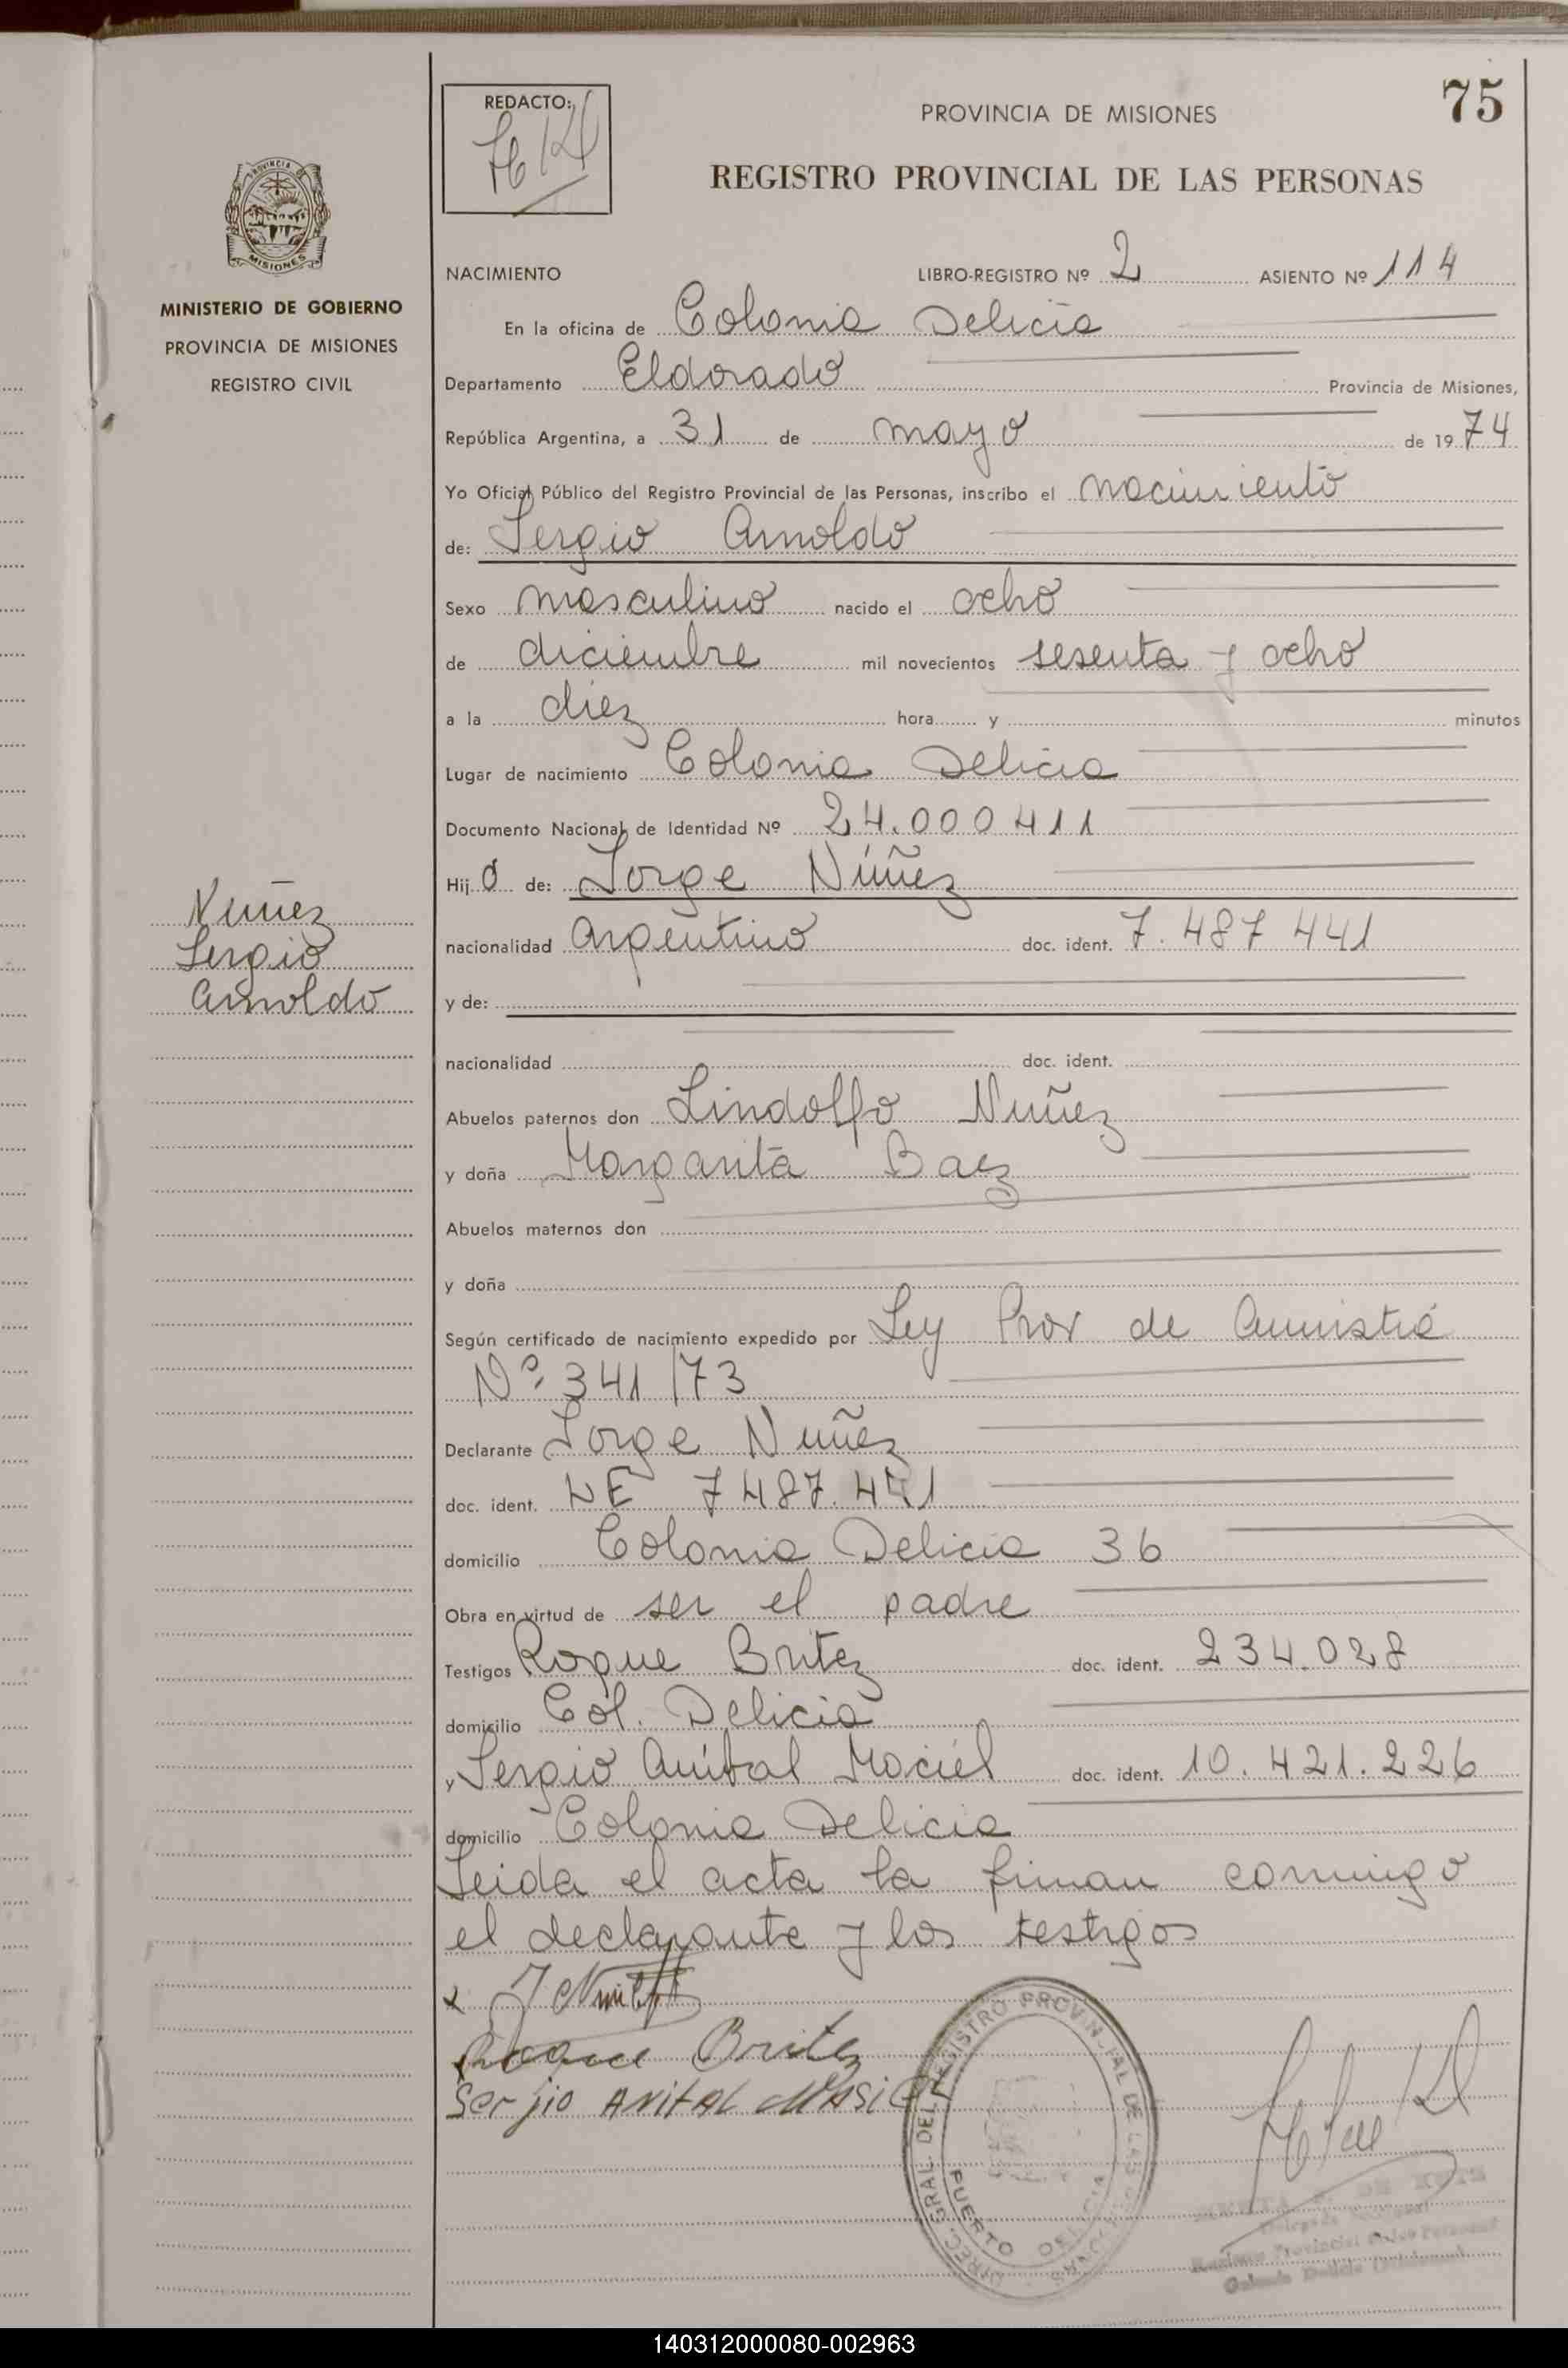 75
REDACTO:
PROVINCIA DE MISIONES
REGISTRO PROVINCIAL DE LAS PERSONAS
PROVINCIA DE
MISIONES
MINISTERIO DE GOBIERNO
PROVINCIA DE MISIONES
REGISTRO CIVIL
NACIMIENTO LIBRO-REGISTRO Nº 2 ASIENTO Nº 114
En la oficina de Colonia Delicia
Departamento Eldorado Provincia de Misiones,
República Argentina, a 31 de mayo de 1974
Yo Oficial Público del Registro Provincial de las Personas, inscribo el nacimiento
de: Sergio Arnoldo
Sexo masculino nacido el ocho
de diciembre mil novecientos sesenta y ocho
a la diez hora y minutos
Lugar de nacimiento Colonia Delicia
Documento Nacional de Identidad Nº 24.000411
Hijo de: Jorge Núñez
Nuñez
Sergio
Arnoldo
nacionalidad argentino doc. ident. 7.487441
y de:
nacionalidad doc. ident.
Abuelos paternos don Lindolfo Nuñez
y doña Margarita Baez
Abuelos maternos don
y doña
Según certificado de nacimiento expedido por Ley Prov de Amnistia
Nº 341/73
Declarante Jorge Nuñez
doc. ident. LE 7487.441
domicilio Colonia Delicia 36
Obra en virtud de ser el padre
Testigos Roque Britez doc. ident. 234.028
domicilio Col. Delicia
y Sergio Anibal Maciel doc. ident. 10.421.226
domicilio Colonia Delicia
Leida el acta la firman conmigo
el declarante y los testigos
Roque Britez
Serjio ANiBAL MASiel
DIREC. GRAL. DEL REGISTRO PROVINCIAL DE LAS PERSONAS
PUERTO DELICIA
Registro Provincial de las Personas
Colonia Delicia
140312000080-002963